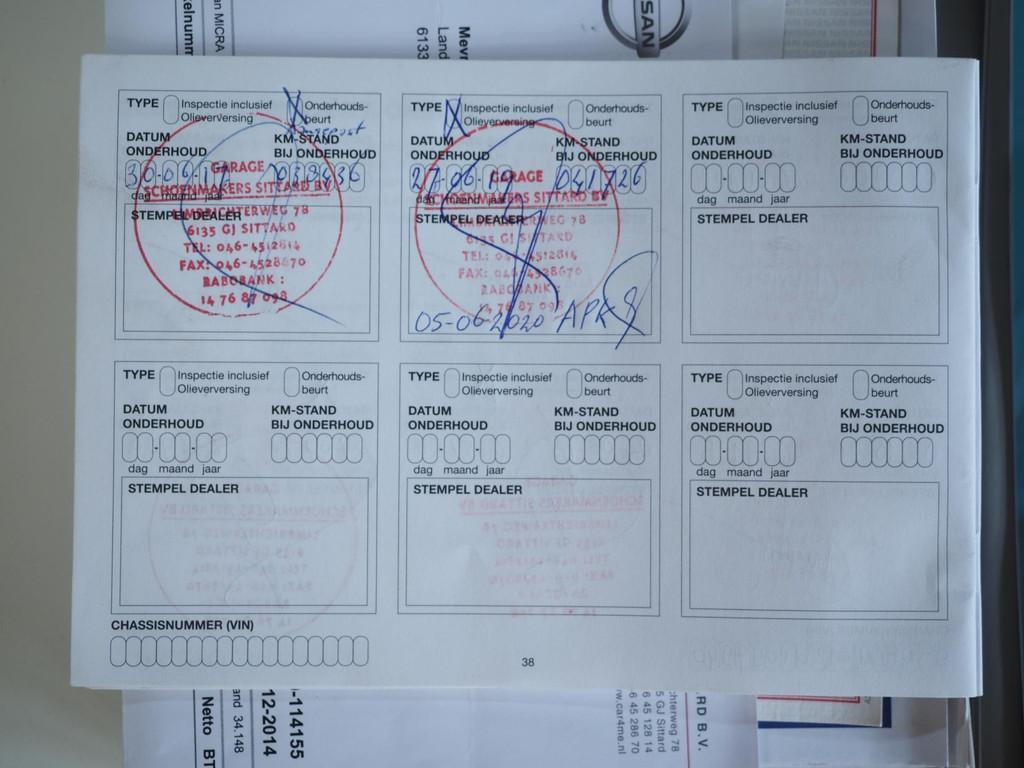 an MICRA
kelnumm
Mevr
Land
6133
SSAN
TYPE Inspectie inclusief Olieverversing Onderhouds-beurt
DATUM ONDERHOUD KM-STAND BIJ ONDERHOUD
dag maand jaar
STEMPEL DEALER
GARAGE
SCHOENMAKERS SITTARD BV
LIMBRICHTERWEG 78
6135 GJ SITTARD
TEL: 046-4512814
FAX: 046-4528670
RABOBANK:
14 76 87 098
TYPE X Inspectie inclusief Olieverversing Onderhouds-beurt
DATUM ONDERHOUD KM-STAND BIJ ONDERHOUD
27-06-19 041726
dag maand jaar
STEMPEL DEALER
GARAGE
SCHOENMAKERS SITTARD BV
LIMBRICHTERWEG 78
6135 GJ SITTARD
TEL: 046-4512814
FAX: 046-4528670
RABOBANK:
14 76 87 098
05-06-2020 APK
TYPE Inspectie inclusief Olieverversing Onderhouds-beurt
DATUM ONDERHOUD KM-STAND BIJ ONDERHOUD
dag maand jaar
STEMPEL DEALER
TYPE Inspectie inclusief Olieverversing Onderhouds-beurt
DATUM ONDERHOUD KM-STAND BIJ ONDERHOUD
dag maand jaar
STEMPEL DEALER
TYPE Inspectie inclusief Olieverversing Onderhouds-beurt
DATUM ONDERHOUD KM-STAND BIJ ONDERHOUD
dag maand jaar
STEMPEL DEALER
TYPE Inspectie inclusief Olieverversing Onderhouds-beurt
DATUM ONDERHOUD KM-STAND BIJ ONDERHOUD
dag maand jaar
STEMPEL DEALER
CHASSISNUMMER (VIN)
38
-114155
12-2014
and 34.148
Netto BT
RD B.V.
chterweg 78
5 GJ Sittard
6 45 128 14
6 45 286 70
w.car4me.nl